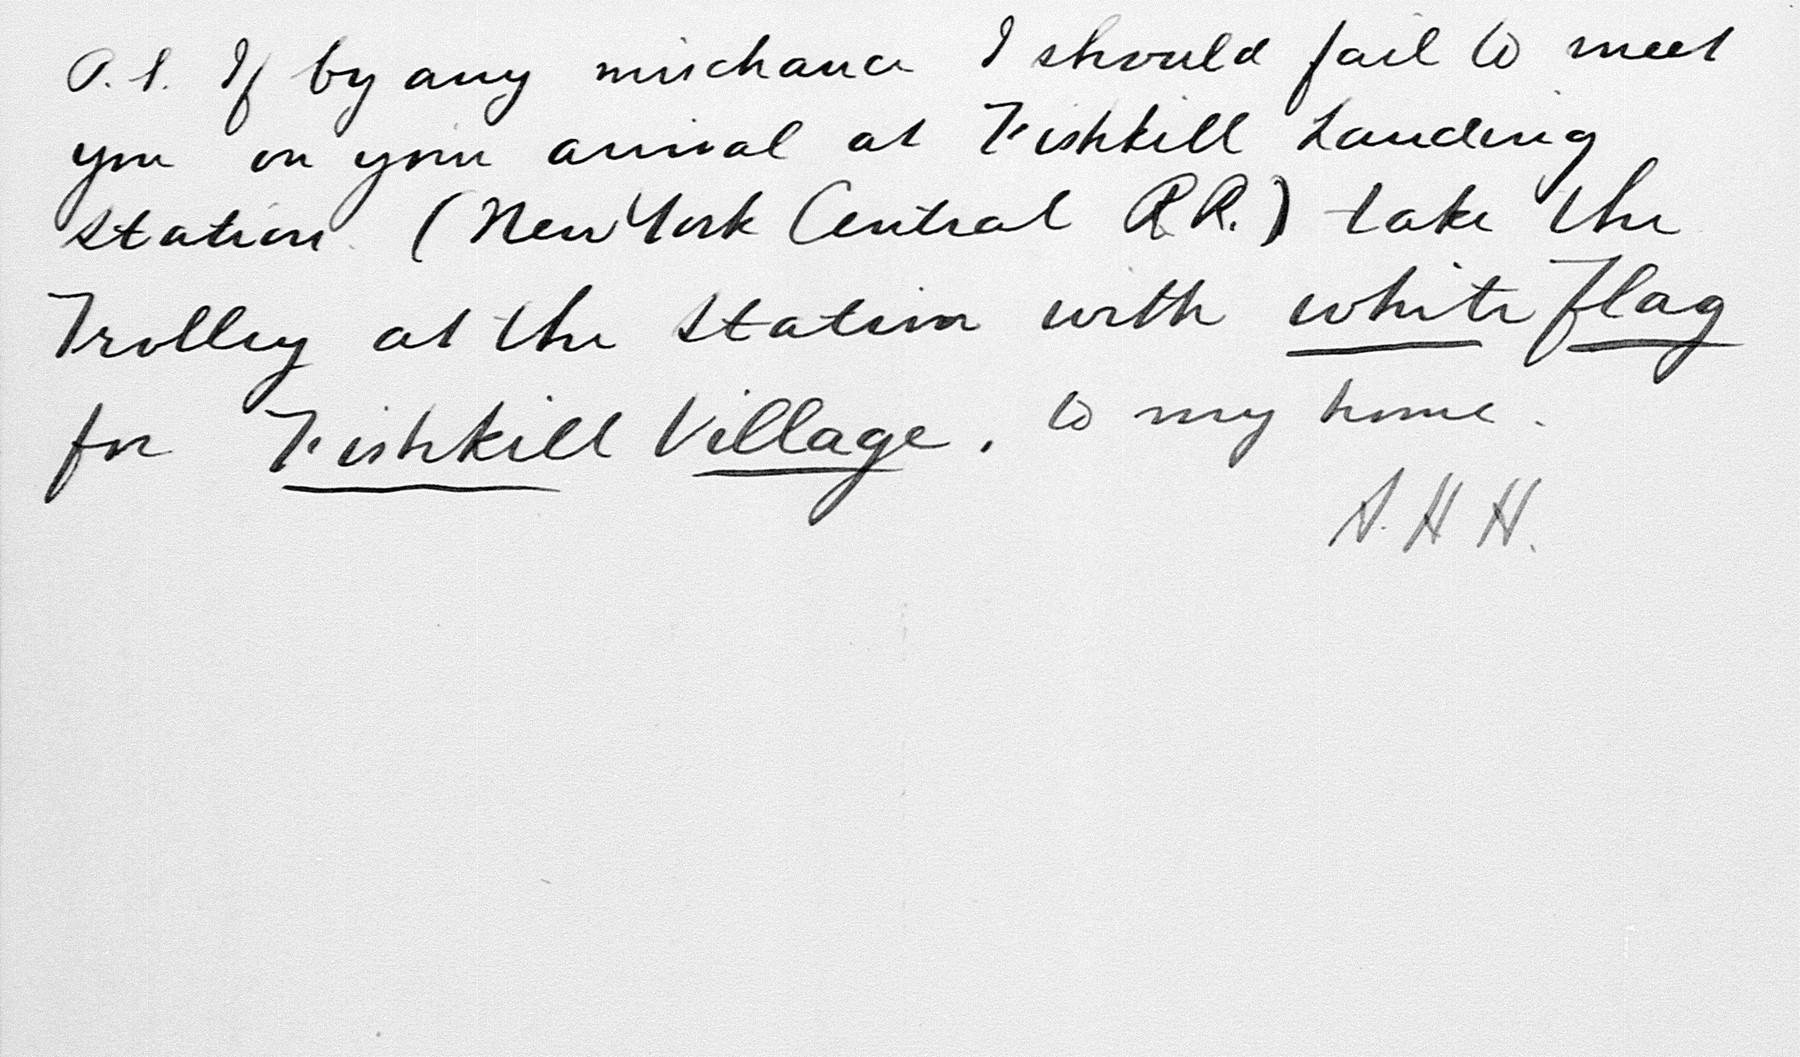 P.S. If by any mischance I should fail to meet
you on your arrival at Fishkill Landing
Station (New York Central R.R.) take the
Trolley at the Station with white Flag
for Fishkill Village, to my home.
A. H H.